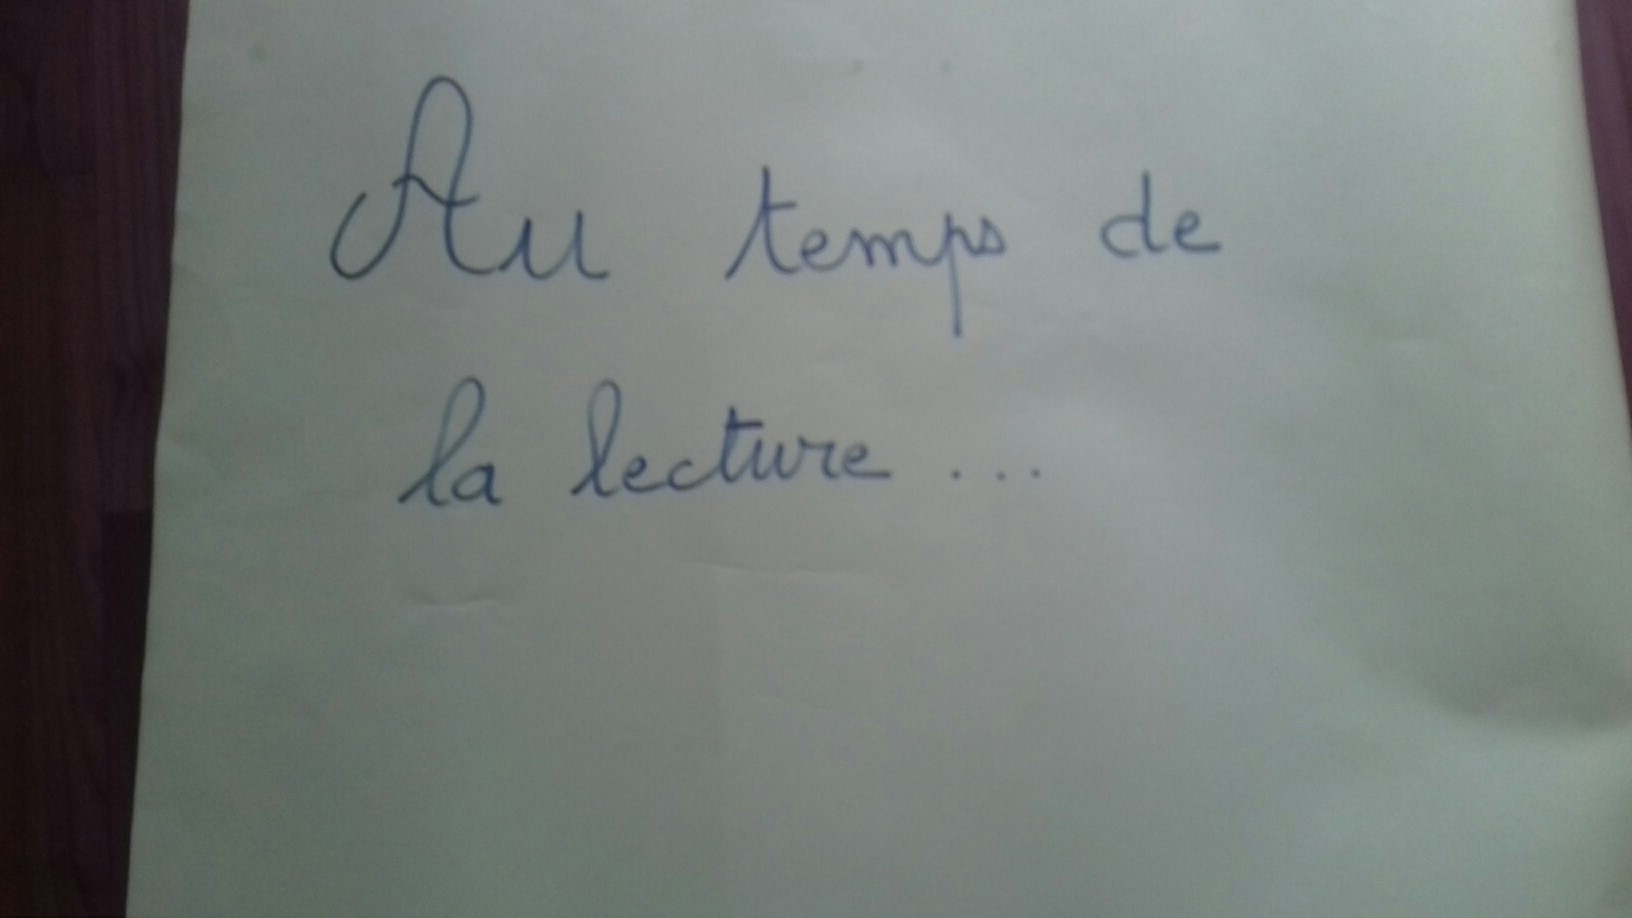 Au temps de
la lecture ...